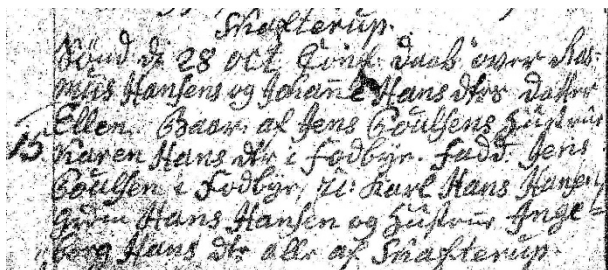 Skafterup.
Sønd d. 28 Oct. Conf. daab over Ras-
mus Hansens og Johanne Hans dtrs datter
Ellen. Baar. af Jens Poulsens Hustrue
15 Karen Hans dtr i Fodbÿe. Fadd. Jens
Poulsen i Fodbÿe, U: Karl Hans Hansen,
Hans Hansen og Hustrue Inge-
borg Hans dtr alle af Skafterup.